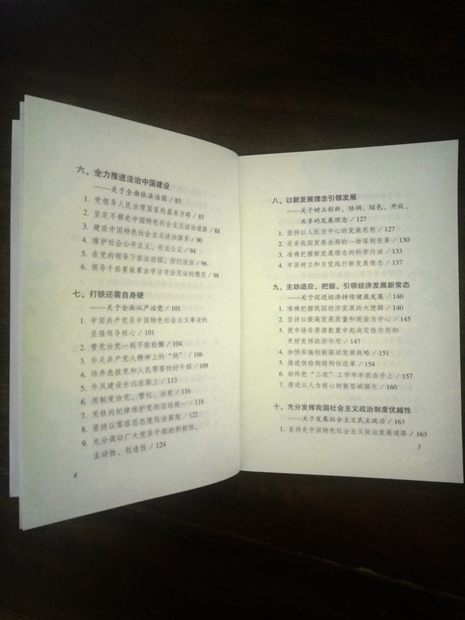 六、全力推进法治中国建设
——关于全面依法治国 / 85
1. 党领导人民治理国家的基本方略 / 85
2. 坚定不移走中国特色社会主义法治道路 / 88
3. 建设中国特色社会主义法治体系 / 90
4. 维护社会公平正义、司法公正 / 94
5. 在党的领导下依法治国、厉行法治 / 96
6. 领导干部要做尊法学法守法用法的模范 / 98
七、打铁还需自身硬
——关于全面从严治党 / 101
1. 中国共产党是中国特色社会主义事业的
坚强领导核心 / 101
2. 管党治党一刻不能松懈 / 104
3. 补足共产党人精神上的“钙” / 106
4. 培养选拔党和人民需要的好干部 / 109
5. 作风建设永远在路上 / 113
6. 用制度治党、管权、治吏 / 116
7. 用铁的纪律维护党的团结统一 / 118
8. 坚持以零容忍态度惩治腐败 / 122
9. 充分调动广大党员干部的积极性、
主动性、创造性 / 124
4
八、以新发展理念引领发展
——关于树立创新、协调、绿色、开放、
共享的发展理念 / 127
1. 坚持以人民为中心的发展思想 / 127
2. 关系我国发展全局的一场深刻变革 / 130
3. 准确把握新发展理念的科学内涵 / 133
4. 牢固树立和自觉践行新发展理念 / 137
九、主动适应、把握、引领经济发展新常态
——关于促进经济持续健康发展 / 140
1. 准确把握我国经济发展的大逻辑 / 140
2. 坚持以提高发展质量和效益为中心 / 145
3. 使市场在资源配置中起决定性作用和
更好发挥政府作用 / 147
4. 加快实施创新驱动发展战略 / 151
5. 推进供给侧结构性改革 / 154
6. 始终把“三农”工作牢牢抓在手上 / 157
7. 推进以人为核心的新型城镇化 / 160
十、充分发挥我国社会主义政治制度优越性
——关于发展社会主义民主政治 / 163
1. 坚持走中国特色社会主义政治发展道路 / 163
5